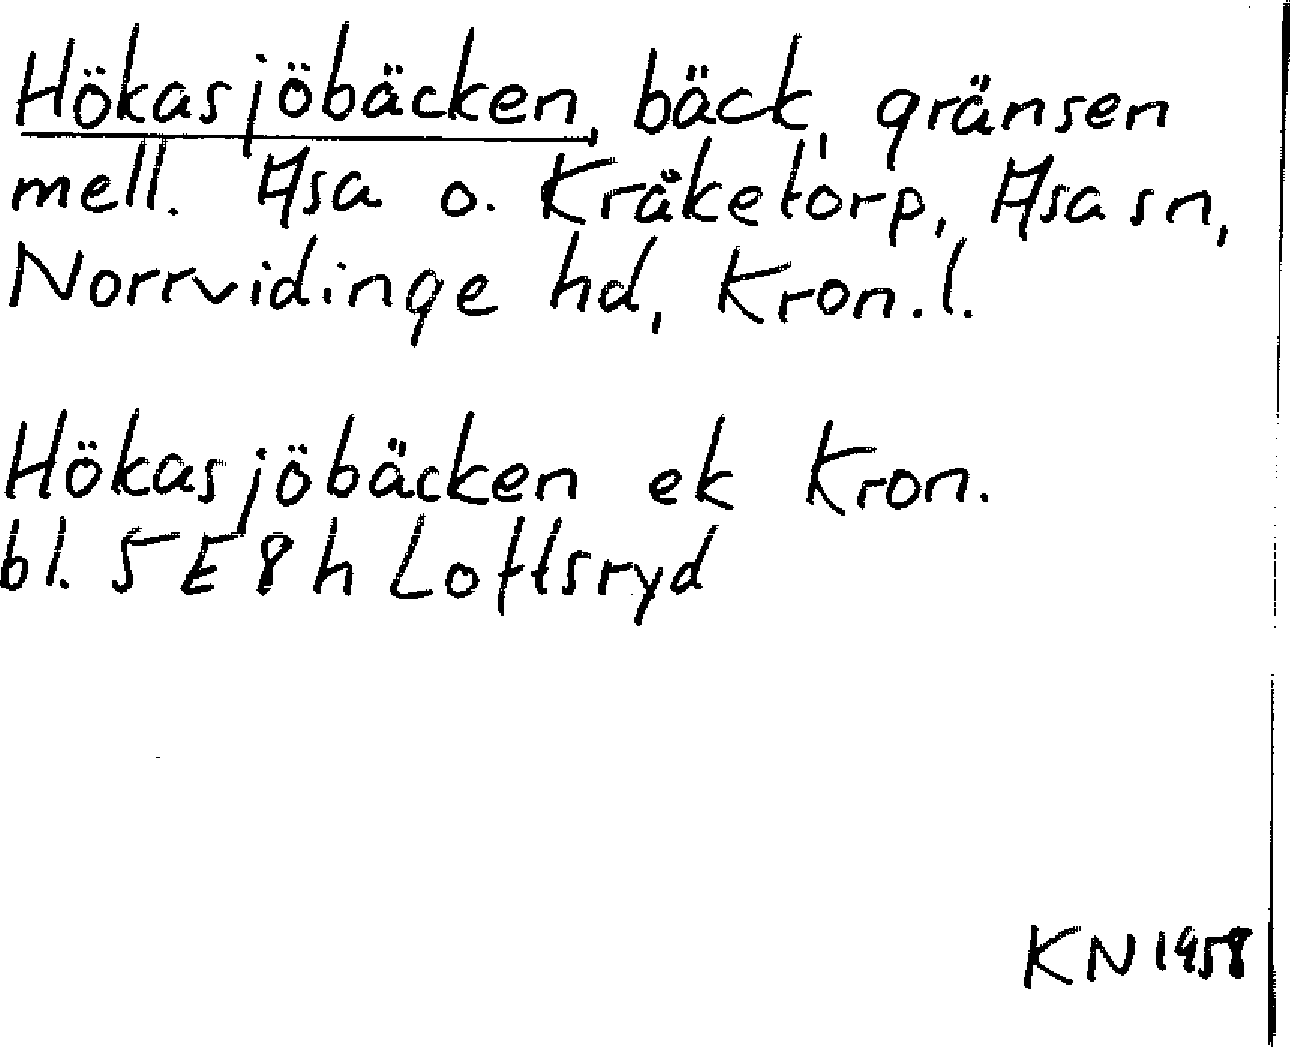 Hökasjöbäcken, bäck, gränsen
mell. Asa o. Kråketorp, Asa sn,
Norrvidinge hd, Kron. l.
Hökasjöbäcken ek Kron.
bl. 5E8h Loftsryd
KN 1958